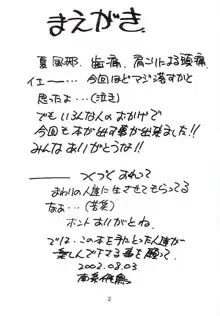 まえがき
夏風邪、歯痛、肩こりによる頭痛、
イエー…、今回ほどマジ落すかと
思ったよ…(泣き)
でもいろんな人のおかげで
今回も本が出す事が出来ました!!
みんなありがとうな!!
つくづくおれって
まわりの人達に生させてもらってる
なぁ…(苦笑)
ホントありがとね。
では、この本を手にとった人達が
楽しんで下さる事を願って。
2002.08.03
2